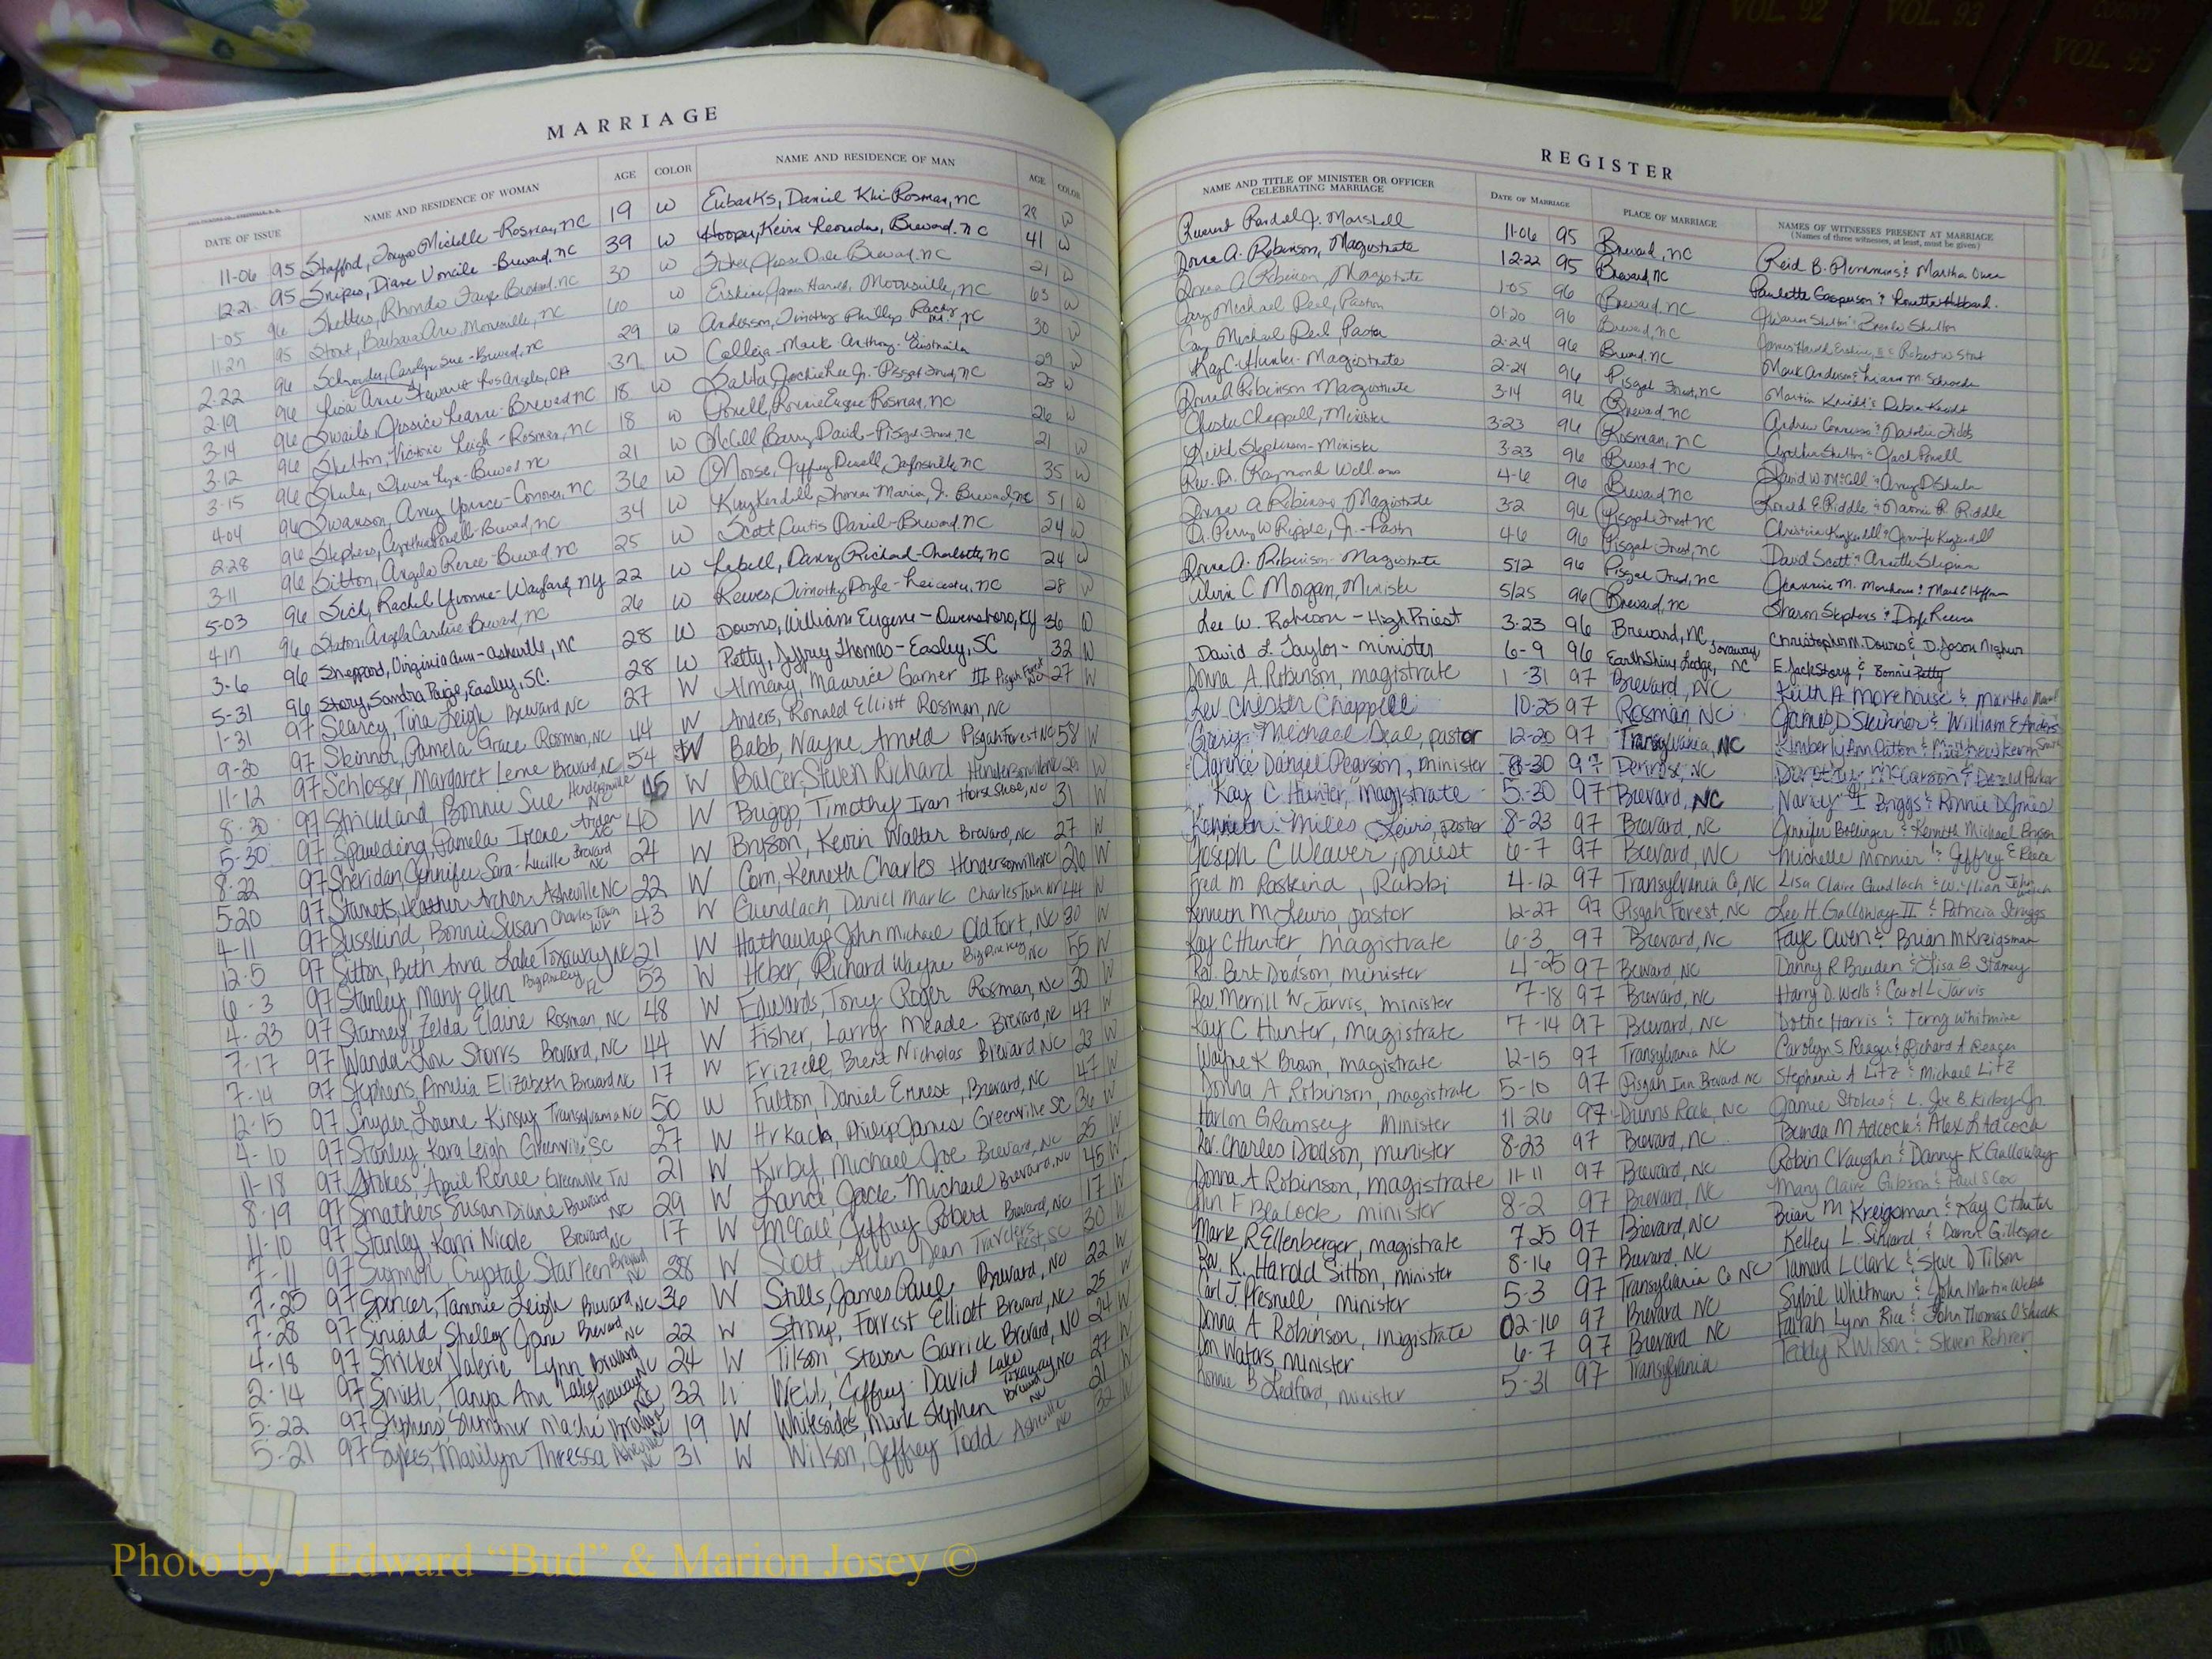 VOL. 90 VOL. 91 VOL. 92 VOL. 93 COUNTY VOL. 95
MARRIAGE
DATE OF ISSUE NAME AND RESIDENCE OF WOMAN AGE COLOR NAME AND RESIDENCE OF MAN AGE COLOR
11-06 95 Stafford, Michelle - Rosman, NC 19 W Eubanks, Daniel Rosman, NC 28 W
12-21 95 Snipes, Diane Voncile - Brevard, NC 39 W Hooper, Brevard, NC 41 W
1-05 96 Rhonda Faye Brevard, NC 30 W Brevard, NC 21 W
11-27 95 Stout, Barbara NC 60 W Erskine, James Harold, NC 63 W
2-22 96 Schroyder, Carolyn Sue - Brevard, NC 29 W Anderson, Timothy Phillip NC 30 W
2-19 96 Lisa Anne Stewart - Los Angeles, CA 37 W Calleja - Mark Anthony - Australia 29 W
3-14 96 Swails, Jessica Leanne - Brevard NC 18 W Jr. - Pisgah Forest, NC 23 W
3-12 96 Shelton, Victoria Leigh - Rosman, NC 18 W Powell, Ronnie Eugene Rosman, NC 26 W
3-15 96 Shula, Theresa Lynn - Brevard NC 21 W McCall Barry David - Pisgah Forest, NC 21 W
4-04 96 Swanson, Amy - Conover, NC 36 W Moose, Jeffrey Taylorsville, NC 35 W
2-28 96 Stephens, Cynthia Powell - Brevard, NC 34 W Kuykendall, Thomas Brevard, NC 51 W
3-11 96 Sitton, Angela Renee - Brevard, NC 25 W Scott, Curtis Daniel - Brevard, NC 24 W
5-03 96 Rachel Yvonne - NY 22 W Lebell, Danny Richard - Charlotte, NC 24 W
4-17 96 Staton Angela Caroline Brevard, NC 26 W Reeves, Timothy Doyle - Leicester, NC 28 W
3-6 96 Sheppard, Virginia Ann - Asheville, NC 28 W Downs, William Eugene - Owensboro, KY 36 W
5-31 96 Story, Sandra Paige, Easley, SC. 28 W Petty, Jeffrey Thomas - Easley, SC 32 W
1-31 97 Searcy, Tina Leigh Brevard NC 27 W Almany, Maurice Garner III Pisgah Forest NC 27 W
9-30 97 Skinner, Pamela Grace Rosman, NC 44 W Anders, Ronald Elliott Rosman, NC
11-12 97 Schlosser, Margaret Lerne Brevard, NC 54 W Babb, Wayne Arnold Pisgah Forest NC 58 W
8-30 97 Strickland, Bonnie Sue Hendersonville NC 45 W Balcer, Steven Richard Hendersonville NC W
5-30 97 Spaulding, Pamela Irene Arden NC 40 W Briggs, Timothy Ivan Horse Shoe, NC 31 W
8-22 97 Sheridan, Jennifer Sara-Lucille Brevard NC 24 W Bryson, Kevin Walter Brevard, NC 27 W
5-20 97 Starnets, Heather Archer Asheville NC 22 W Corn, Kenneth Charles Hendersonville NC 26 W
4-11 97 Susskind, Bonnie Susan Charles Town WV 43 W Gundlach, Daniel Mark Charles Town WV 44 W
12-5 97 Sitton, Beth Anna Lake Toxaway NC 21 W Hathaway, John Michael Old Fort, NC 30 W
6-3 97 Stanley, Mary Ellen Big Pine Key FL 53 W Heber, Richard Wayne Big Pine Key NC 55 W
4-23 97 Stamey, Zelda Elaine Rosman, NC 48 W Edwards, Tony Roger Rosman, NC 30 W
7-17 97 Wanda Lou Storrs Brevard, NC 44 W Fisher, Larry Meade Brevard, NC 47 W
7-14 97 Stephens, Amelia Elizabeth Brevard NC 17 W Frizzell, Brent Nicholas Brevard NC 23 W
12-15 97 Snyder, Lorene Kinsey Transylvania NC 50 W Fulton, Daniel Ernest, Brevard, NC 47 W
4-10 97 Stanley Kara Leigh Greenville SC 27 W Hrkach, Philip James Greenville SC 36 W
11-18 97 Stokes, April Renee Greenville TN 21 W Kirby, Michael Joe Brevard, NC 25 W
8-19 97 Smathers Susan Diane Brevard NC 29 W Lance, Jack Michael Brevard, NC 45 W
11-10 97 Stanley, Karri Nicole Brevard, NC 17 W McCall, Jeffrey Robert Brevard, NC 17 W
7-11 97 Crystal Starleen Brevard NC 28 W Scott, Allen Dean Travelers Rest, SC 30 W
7-25 97 Spencer, Tammie Leigh Brevard, NC 36 W Stills, James Paul Brevard, NC 22 W
7-28 97 Siniard Shelley Jane Brevard NC 22 W Stroup, Forrest Elliott Brevard, NC 25 W
4-18 97 Stricker, Valerie Lynn Brevard NC 24 W Tilson, Steven Garrick Brevard, NC 24 W
2-14 97 Smith, Tanya Ann Lake Toxaway NC 32 W Jeffrey David Lake Toxaway NC 27 W
5-22 97 Stephens Summer Brevard NC 19 W Whitesides, Mark Stephen Brevard NC 21 W
5-21 97 Sykes, Marilyn Thressa Asheville NC 31 W Wilson, Jeffrey Todd Asheville NC 32 W
REGISTER
NAME AND TITLE OF MINISTER OR OFFICER CELEBRATING MARRIAGE DATE OF MARRIAGE PLACE OF MARRIAGE NAMES OF WITNESSES PRESENT AT MARRIAGE
(Names of three witnesses, at least, must be given)
Reverend Randel J. Marshall 11-06 95 Brevard, NC Reid B. Flemmings & Martha Owen
Donna A. Robinson, Magistrate 12-22 95 Brevard, NC Paulette Gasperson & Lonetta Hubbard
Donna A Robinson, Magistrate 1-05 96 Brevard, NC Shelton & Shelton
Gary Michael Deal, Pastor 01-20 96 Brevard, NC James Harold Erskine, & Robert W Stout
Gary Michael Deal, Pastor 2-24 96 Brevard, NC Mark Anderson & M. Schroeder
Kay C. Hunter - Magistrate 2-24 96 Pisgah Forest, NC Martin Knight & Debra Knight
Donna A Robinson Magistrate 3-14 96 Brevard NC Andrew & Natalie
Chester Chappell, Minister 3-23 96 Rosman, NC Cynthia Shelton & Jack Powell
Keith Stephenson - Minister 3-23 96 Brevard NC David W McCall & Amy D Shula
Rev. Dr. Raymond Williams 4-6 96 Brevard NC Ronald E Riddle & Naomi R Riddle
Donna A Robinson, Magistrate 3-2 96 Pisgah Forest NC Christina Kuykendall & Jennifer Kuykendall
Dr. Perry W Ripple, Jr. - Pastor 4-6 96 Pisgah Forest, NC David Scott &
Donna A. Robinson - Magistrate 5/12 96 Pisgah Forest, NC M. Morehouse & Mark E Hoffman
Alvin C Morgan, Minister 5/25 96 Brevard, NC Sharon Stephens & Doyle Reeves
Lee W. Robison - High Priest 3-23 96 Brevard, NC Christopher M. Downs & D. Jason
David L. Taylor - minister 6-9 96 Earthshine Lodge, Toxaway NC E. Jack Story & Bonnie Petty
Donna A. Robinson, magistrate 1-31 97 Brevard, NC Keith A Morehouse & Martha
Rev. Chester Chappell 10-25 97 Rosman NC James D Skinner & William E Anders
Gary Michael Deal, pastor 12-20 97 Transylvania, NC Kimberly Ann Patton & Matthew Kevin
Clarence Daniel Pearson, minister 8-30 97 Penrose, NC McCarson & Parker
Kay C Hunter, magistrate 5-30 97 Brevard, NC Nancy I Briggs & Ronnie D Jones
Kenneth Miles Lewis, pastor 8-23 97 Brevard, NC Jennifer Bollinger & Kenneth Michael Bryson
Joseph C Weaver, priest 6-7 97 Brevard, NC Michelle Monnier & Jeffrey E Reece
Fred M Raskind, Rabbi 4-12 97 Transylvania Co, NC Lisa Claire Gundlach & William John
Kenneth M Lewis, pastor 12-27 97 Pisgah Forest, NC Lee H. Galloway II & Patricia Scruggs
Kay C Hunter, magistrate 6-3 97 Brevard, NC Faye Owen & Brian M Kreigsman
Rev. Bert Dodson, minister 4-25 97 Brevard, NC Danny R Breeden & Lisa B Stamey
Rev. Merrill W Jarvis, minister 7-18 97 Brevard, NC Harry D. Wells & Carol L Jarvis
Kay C Hunter, magistrate 7-14 97 Brevard, NC Dottie Harris & Terry Whitmire
Wayne K Brown, magistrate 12-15 97 Transylvania NC Carolyn S Reager & Richard A Reager
Donna A Robinson, magistrate 5-10 97 Pisgah Inn Brevard NC Stephanie A Litz & Michael Litz
Harlon G Ramsey Minister 11-26 97 Dunns Rock, NC Jamie Stokes & L. Joe B Kirby Jr.
Rev. Charles Dodson, minister 8-23 97 Brevard, NC Brenda M Adcock & Alex L Adcock
Donna A Robinson, magistrate 11-11 97 Brevard, NC Robin C Vaughn & Danny K Galloway
Ann F Blalock minister 8-2 97 Brevard, NC Mary Claire Gibson & Paul S Cox
Mark R Ellenberger, magistrate 7-25 97 Brevard, NC Brian M Kreigsman & Kay C Hunter
Rev. K. Harold Sitton, minister 8-16 97 Brevard, NC Kelley L. Siniard & Darren Gillespie
Carl J. Presnell, minister 5-3 97 Transylvania Co NC Tamara L Clark & Steve D Tilson
Donna A Robinson, magistrate 02-16 97 Brevard NC Sybil Whitman & John Martin Webb
Don Waters, minister 6-7 97 Brevard NC Farrah Lynn Rice & John Thomas
Ronnie B Ledford, minister 5-31 97 Transylvania Teddy R Wilson & Steven Rohrer
Photo by J Edward "Bud" & Marion Josey ©